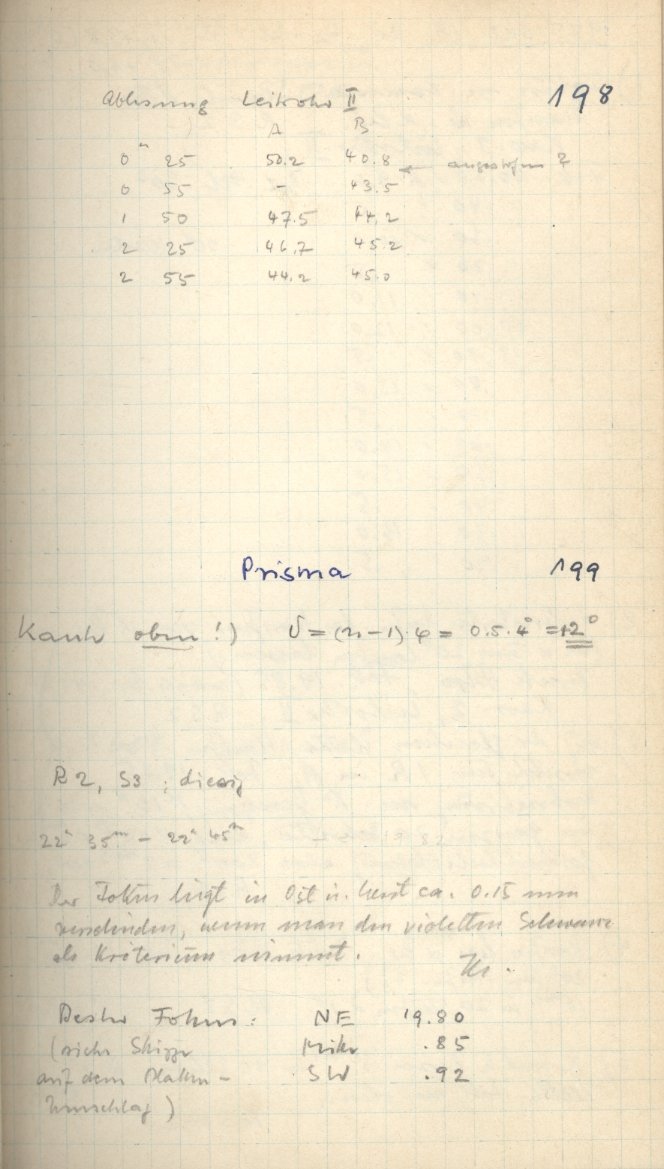 Ablesung Leitrohr II 198
A B
0ʰ 25 50.2 40.8 ← angestoßen ?
0 55 - 43.5
1 50 47.5 44.2
2 25 46.7 45.2
2 55 44.2 45.0
Prisma 199
Kante oben !) δ = (n-1)·φ = 0.5·4° = +2°
R2, S3 ; diesig
22ʰ 35ᵐ - 22ʰ 45ᵐ
Der Fokus liegt in Ost u. West ca. 0.15 mm
verschieden, wenn man den violetten Schwanz
als Kriterium nimmt.
Bester Fokus: NE 19.80
(siehe Skizze Mitte .85
auf dem Platten- SW .92
Umschlag)